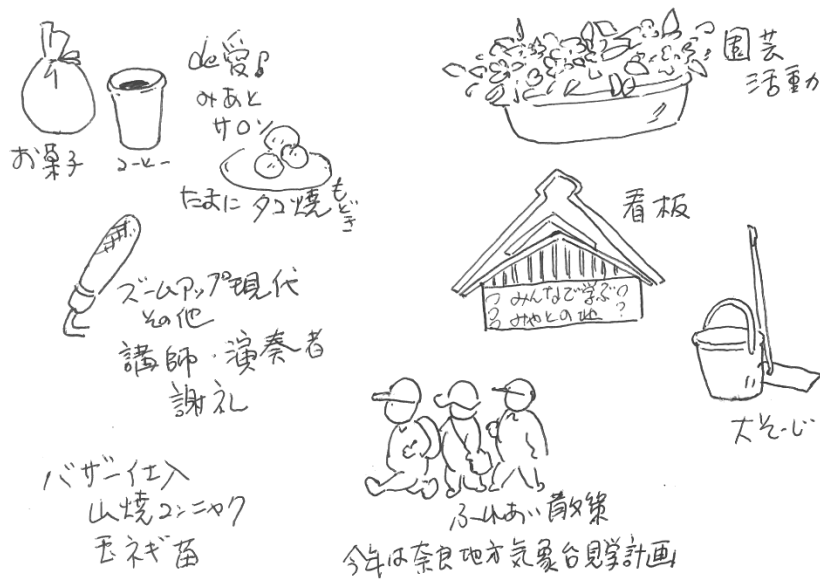 de愛♪
みあと
サロン
お菓子
コーヒー
たまに タコ焼もどき
園芸
活動
看板
みんなで学ぶ
みやとの地
ズームアップ現代
その他
講師・演奏者
謝礼
大そーじ
バザー仕入
山焼コンニャク
玉ネギ苗
ふれあい散策
今年は奈良地方気象台見学計画